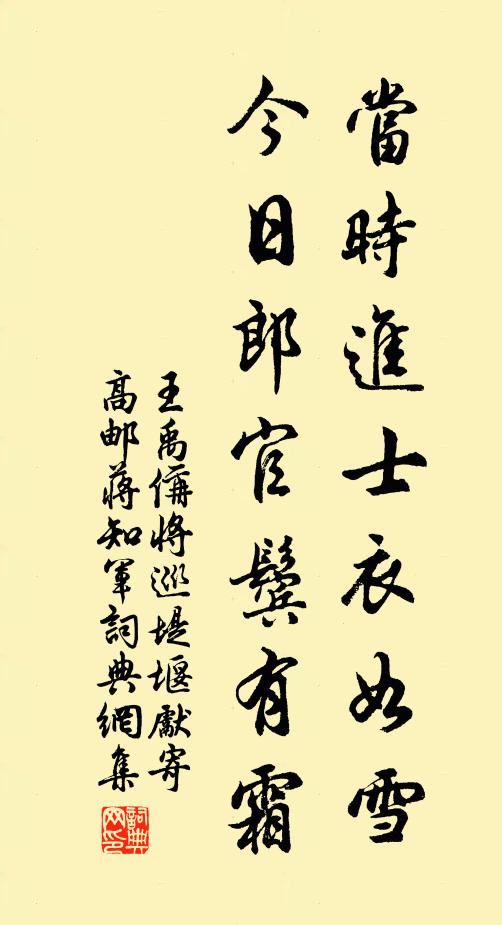 當時進士衣如雪
今日郎官鬢有霜
王禹偁將巡堤堰獻寄
高邮蔣知軍詞典網集
詞典
网印